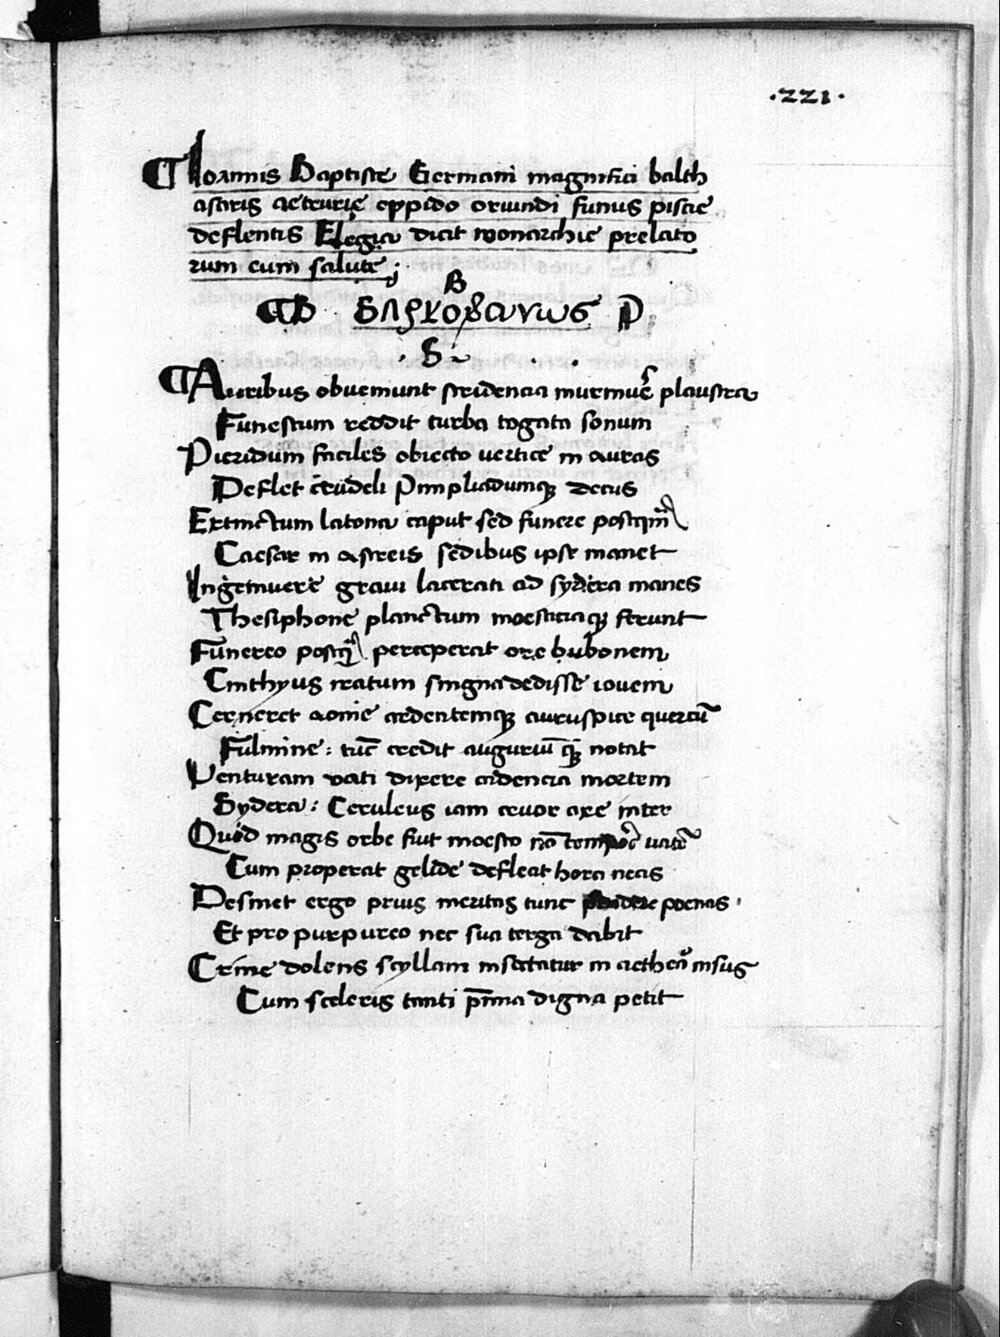 ·221·
Ioannis Baptiste Germani magnifici balth
asaris aeteurie oppido oriundi funus piscie
deflentis Elegia dicit monarchie prelato
rum cum salute;
B
P
·S·
Auribus obuemunt stridencia murmur̃ plaustra
Funestum reddit turba togata sonum
Pieridum faciles obiecto uertice in auras
Deflet crudeli Pimpliadumq̃ decus
Extinctum latona caput sed funere postq̃m
Caesar in astreis sedibus ipse manet
Ingemuere graui lacerati ad sydera manes
Thesiphone planctum moesticiaq̃ ferunt
Funereo postq̃ perceperat ore bubonem
Cinthyus reatum singna dedisse iouem
Cerneret aonie ardentemq̃ auruspice quercũ
Fulmine: tũc credit auguriũ q̃ notat
Venturam uati dixere cadencia mortem
Sydera: Ceruleus iam cruor axe inter
Quod magis orbe fiut moesto nõ uatẽ
Cum properat gelide defleat hora necis
Desinet ergo prius meritas tunc poenas
Et pro purpureo nec sua terga dabit
Crine dolens scyllam insectatur in aetherẽ nisus
Cum sceleris tanti p̃mia digna petit